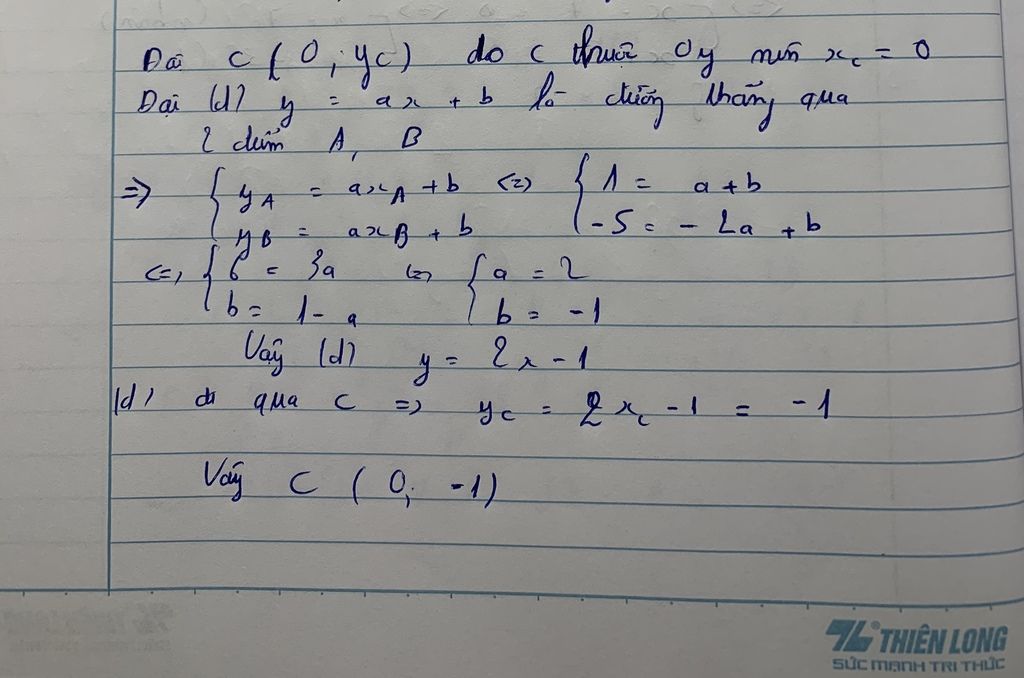 Đặt C ( 0 , yC ) do C thuộc Oy nên xC = 0
Đặt (d) y = ax + b là đường thẳng qua
2 điểm A, B
=> { yA = axA + b <=> { 1 = a + b
yB = axB + b -5 = - 2a + b
<=> { 6 = 3a <=> { a = 2
b = 1 - a b = -1
Vậy (d) y = 2x - 1
(d) đi qua C => yC = 2xC - 1 = -1
Vậy C ( 0; -1)
THIÊN LONG
SỨC MẠNH TRI THỨC